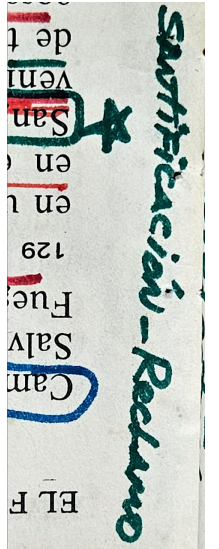 EL F
Cam
Salv
Fueg
129
en u
en
San
veni
de t
Santificación-Reclamo